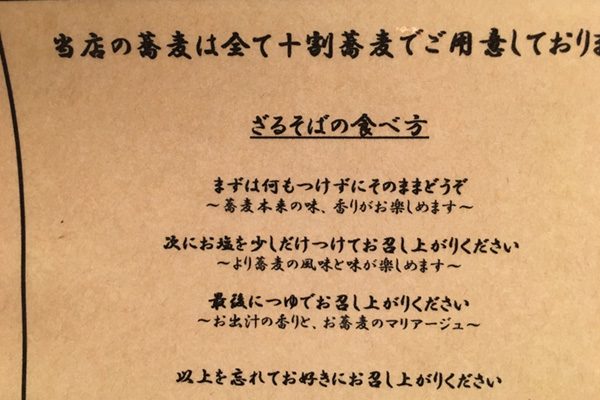 当店の蕎麦は全て十割蕎麦でご用意しておりま
ざるそばの食べ方
まずは何もつけずにそのままどうぞ
～蕎麦本来の味、香りがお楽しめます～
次にお塩を少しだけつけてお召し上がりください
～より蕎麦の風味と味が楽しめます～
最後につゆでお召し上がりください
～お出汁の香りと、お蕎麦のマリアージュ～
以上を忘れてお好きにお召し上がりください